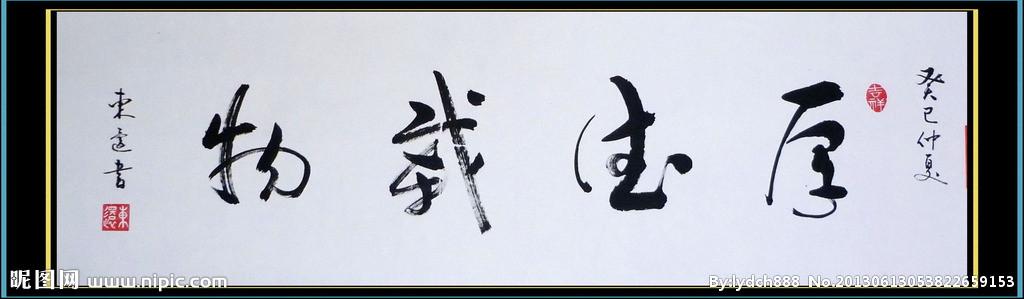 癸巳仲夏
吉祥
厚德载物
东还书
昵图网 www.nipic.com
By:lydch888 No.20130613053822659153